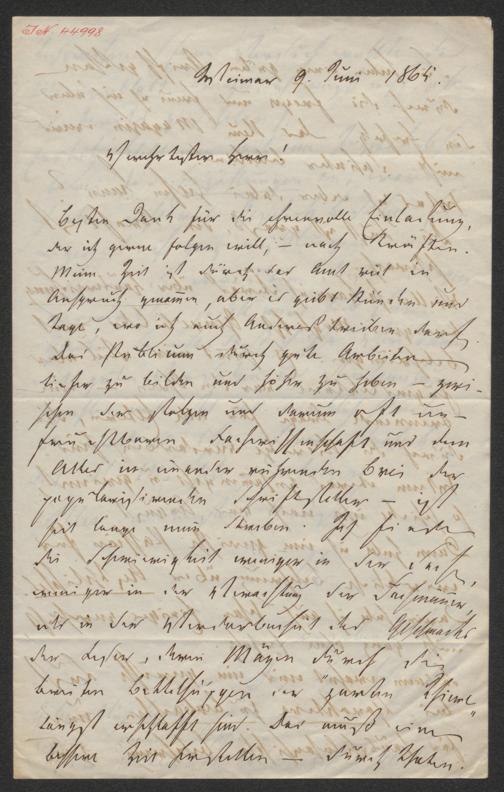 JN 44998
Weimar 9. Juni 1865.
Verehrtester Herr!
Besten Dank für die ehrenvolle Einladung,
der ich gerne folgen will, – nach Kräften.
Meine Zeit ist durch das Amt viel in
Anspruch genommen, aber es gibt Stunden und
Tage, wo ich auch Anderes treiben darf.
Das Publicum durch gute Arbeiten
tiefer zu bilden und höher zu heben – zwi-
schen der stolzen und darum oft un-
fruchtbaren Fachwissenschaft und dem
Alles in einander rührenden Brei der
popularisirenden Schriftsteller – ist
seit lange mein Streben. Ich finde
die Schwierigkeit weniger in der Sache,
weniger in der Verachtung der Fachmänner,
als in der Verdorbenheit des Geschmacks
der Leser, deren Mägen durch die
breiten Bettelsuppen der
längst erschlafft sind. Das muß eine
bessere Zeit herstellen – durch Thaten.